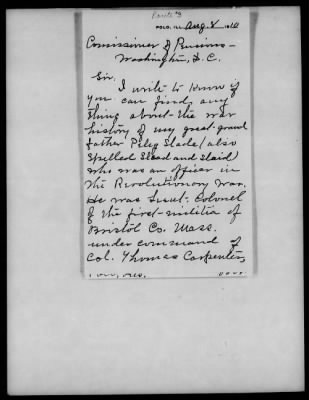 Route #3
Aug. 8
Comissioner of Pensions -
Washington, D.C.
Sir.
I write to know if
you can find any
thing about the war
history of my great grand
father Peleg Slade (also
spelled Slead and Slaid)
who was an officer in
the Revolutionary War.
He was Lieut. Colonel
of the first militia of
Bristol Co. Mass.
under command of
Col. Thomas Carpenter,